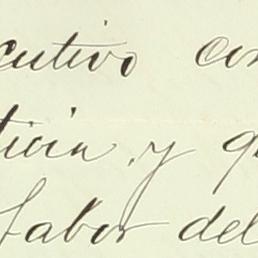 cutivo con
ticia, y q
labor del